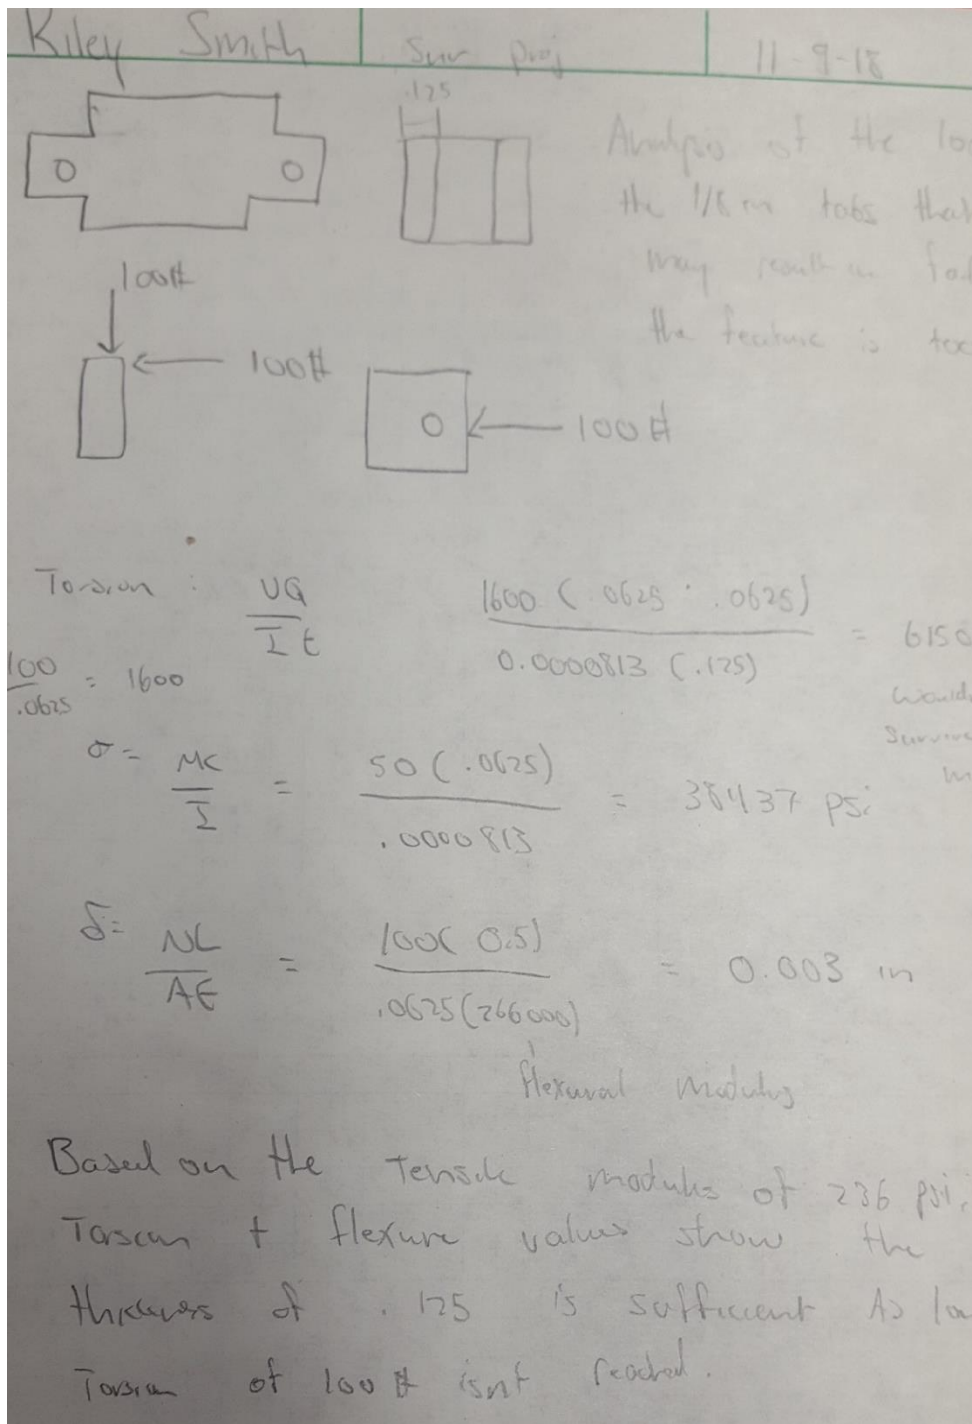 Kiley Smith
Senr Proj
11-9-18
.125
Analysis of the
the 1/8 in tabs that
may result in
the feature is
100#
100#
100#
Torsion : VQ / It
1600 (.0625 · .0625) / 0.0000813 (.125) = 6150
100 / .0625 = 1600
would
survive
σ = MC / I = 50 (.0625) / .0000813 = 38437 psi
δ = NL / AE = 100( 0.5) / .0625(266000) = 0.003 in
flexural modulus
Based on the Tensile modulus of 236 psi,
Torsion + flexure values show the
thickness of .125 is sufficient As
Torsion of 100# isnt reached.